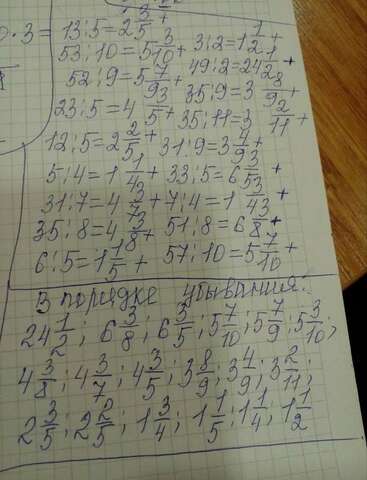 0 · 3 = 13:5=2 3/5 +
53:10=5 3/10 + 3:2=1 1/2 +
52:9=5 7/9 + 49:2=24 1/2 +
23:5=4 3/5 + 35:9=3 8/9 +
12:5=2 2/5 + 35:11=3 2/11 +
5:4=1 1/4 + 31:9=3 4/9 +
31:7=4 3/7 + 33:5=6 3/5 +
35:8=4 3/8 + 7:4=1 3/4 +
6:5=1 1/5 + 51:8=6 3/8 +
57:10=5 7/10 +
В порядке убывания:
24 1/2; 6 3/8; 6 3/5; 5 7/10; 5 7/9; 5 3/10;
4 3/8; 4 3/7; 4 3/5; 3 8/9; 3 4/9; 3 2/11;
2 3/5; 2 2/5; 1 3/4; 1 1/5; 1 1/4; 1 1/2